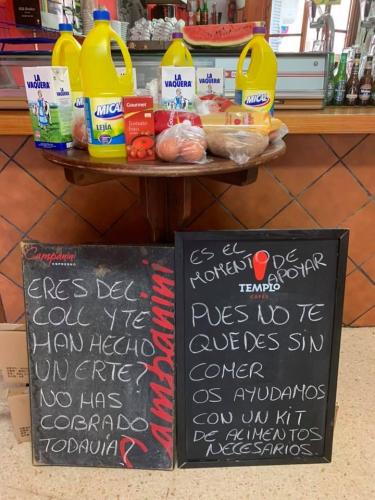 LA
VAQUERA
LA
VAQUERA
MICAL
LEJÍA
Gourmet
Tomate
frito
MICAL
Campanini
ESPRESSO
ERES DEL
COLL Y TE
HAN HECHO
UN ERTE?
NO HAS
COBRADO
TODAVIA?
Campanini
ES EL
MOMENTO DE
APOYAR
TEMPLO
CAFÉS
PUES NO TE
QUEDES SIN
COMER
OS AYUDAMOS
CON UN KIT
DE ALIMENTOS
NECESARIOS